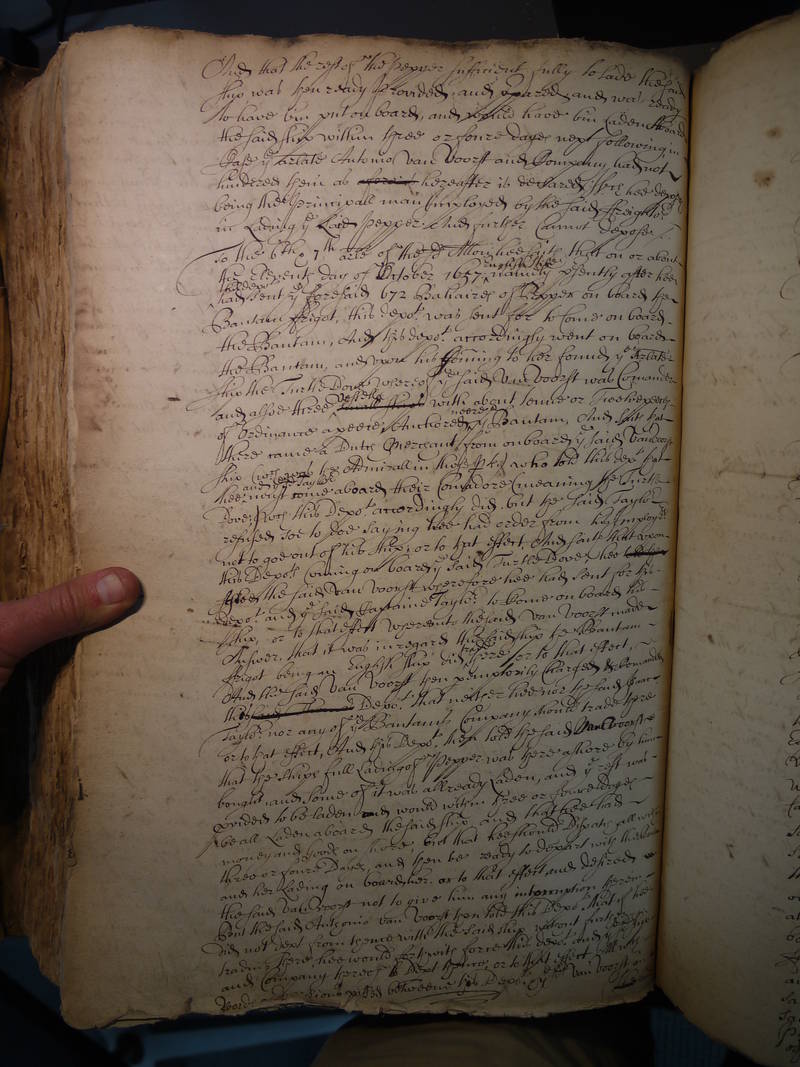 And that the rest of the Pepper sufficient fully to lade the said
ship was then ready provided and and was ready
to have bin put on board, and would have bin Laden aboard
the said ship within three or foure dayes next following, in
Case ye arlate Antonio Van Voorst and Company had not
hindered them as hereafter is declared, hee depot
being the Principall man imployed by the said freighters
in Lading ye said Pepper And further Cannot depose
To the 6th 7th arle of the sd Allon hee saith that on or about
the eleventh day of October 1657 English stile namely presently after hee
this depot had sent ye foresaid 672 Bahaires of Pepper on board the
Bantam frigot, this depot was sent for to come on board
the Bantam, And this depot accordingly went on board
the Bantam, and upon his Coming to her found ye arlate
ship the Turtle Dove whereof ye said Van Voorst was Comander
and alsoe three vessells with about tenne or twelve peeces
of Ordinance a peece, Anchored neere ye Bantam, And saith that
there came a Dutch Merchant from on board ye said Van Voorst
ship the Admirall in those who told this depot that
hee and sd Taylor must come aboard their Comadore (meaning the Turtle
Dove) wch this Depot accordingly did but the said Taylor
refused soe to doe saying hee had order from his Imployers
not to goe out of his ship or to that effect, And saith that upon
this Depots Coming on board ye said Turtle Dove, hee
asked the said Van Voorst wherefore hee had sent for this
depot and ye said Captaine Taylor to Come on board his
ship, or to that effect whereunto the said Van Voorst made
Answer, that it was in regard the said ship the Bantam
frigot being an English ship did trade there or to that effect,
And the said Van Voorst then peremptorily Charged & Comanded
this Depot that neither hee nor the said
Taylor nor any of ye Bantams Company should trade there
or to that effect, And this Depot then told the said Van Voorst
that the ships full Lading of Pepper was there ashore by him
bought, and some of it was allready Laden, and ye rest was
provided to be laden and would within three or foure dayes
be all Laden aboard the said ship, and that hee had
money and goods on shore, but that hee should dispatch all within
three or foure Dayes, and then be ready to depart with the said ship
and her Lading on board her, or to that effect and desired
the said Van Voorst not to give him any interruption therein
But the said Antonio Van Voorst then told this Depot that if hee
did not dept from thence with the said ship without further
trading there hee would with force this depot and ye said ship
and Company thereof to dept thence, or to that effect
words passed betweene this Depot & ye sd Van Voorst